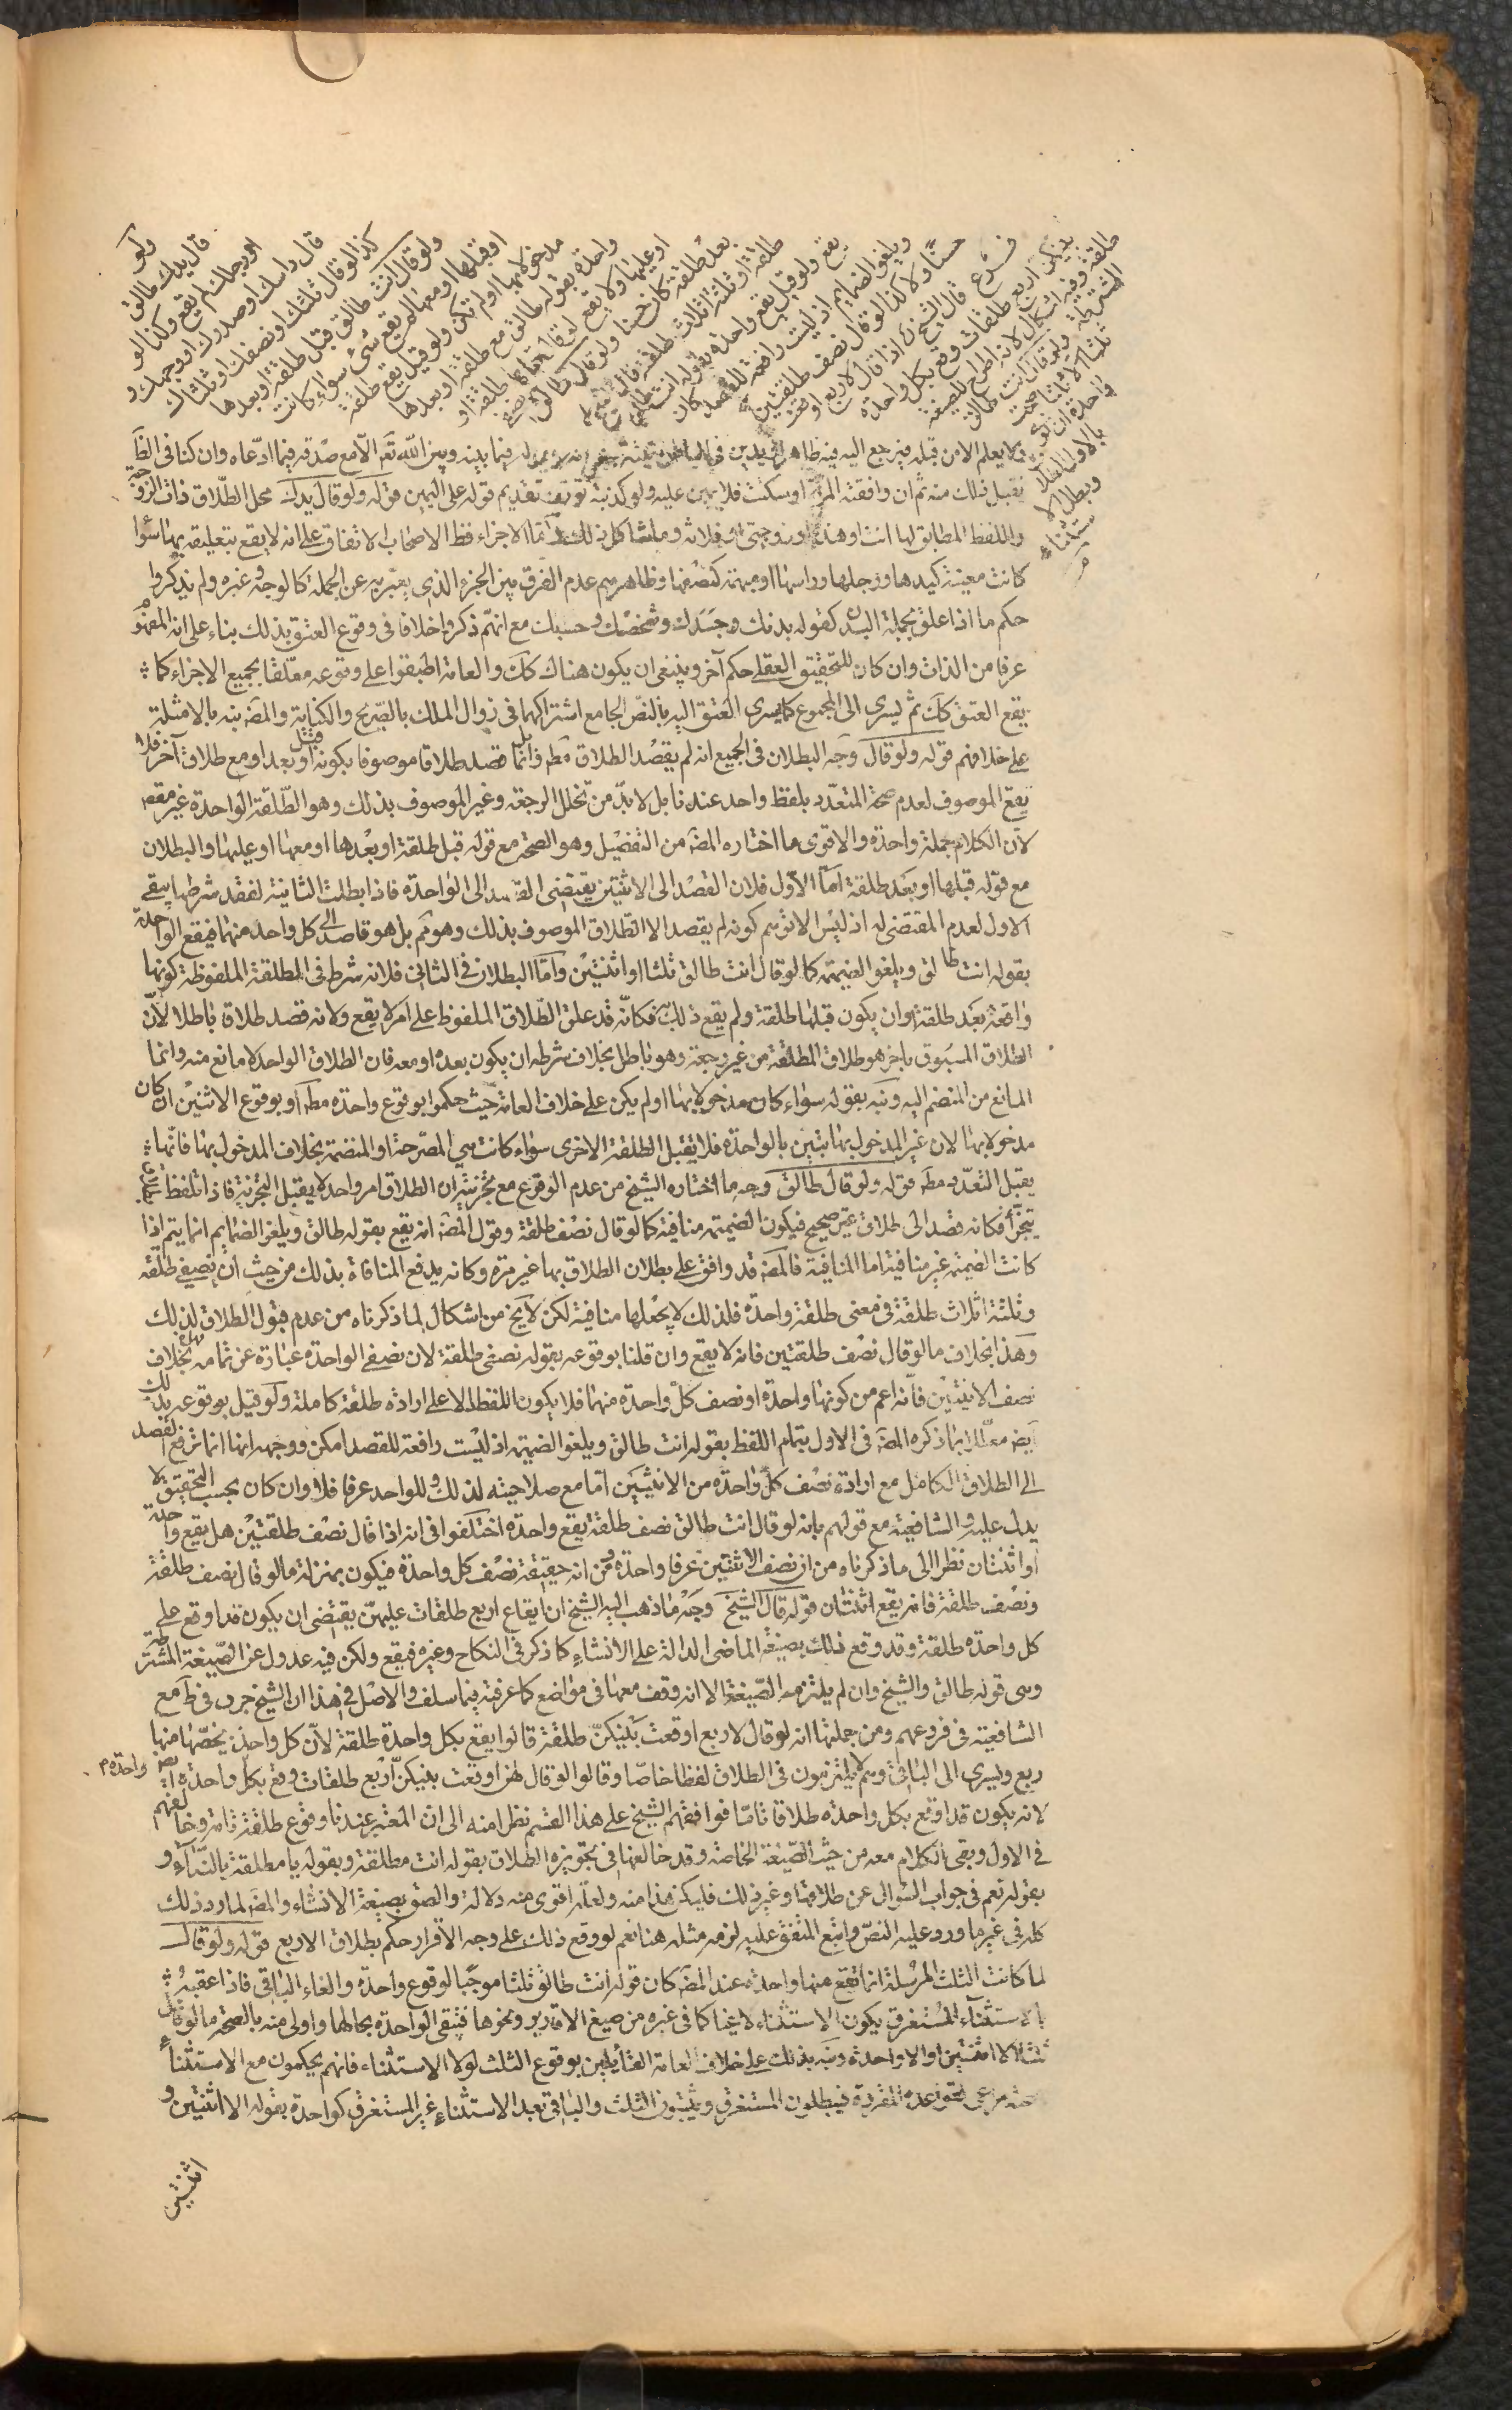 ولو
قال يدك طالق
او رجلك لم يقع وكذا لو
قال راسك او صدرك او وجهك و
كذا لو قال ثلثك او نصفك او ثلثاك
ولو قال انت طالق قبل طلقة او بعدها
او قبلها او معها لم يقع شئ سواء كانت
مدخولا بها او لم تكن ولو قيل يقع طلقة
واحدة بقوله طالق مع طلقة او بعدها
او عليها ولا يقع لو قال قبلها طلقة او
بعد طلقة كان حسنا ولو قال طالق نصفي
طلقة او ثلثة اثلاث طلقة قال الشيخ لا
يقع ولو قيل يقع واحدة بقوله انت طالق
ويلغو الضمايم اذ ليست رافعة للقصد كان
حسنا ولا كذا لو قال نصف طلقتين
فرع قال الشيخ ره اذا قال لاربع اوقعت
بينكن اربع طلقات وقع بكل واحدة
طلقة وفيه اشكال لانه اطراح للصيغة
المشترطة ولو قال انت طالق
ثلثا الا ثلثا صحت
واحدة ان نوى
بالاول الطلاق
وبطل الا
ستثناء
فلا يعلم الا من قبله فيرجع اليه فيه ظاهرا ويدين في الباطن بنيته فيما بينه وبين الله تع الا مع صدقه فيما ادعاه وان كنا في الظاهر
نقبل ذلك منه ثم ان وافقته المراة او سكتت فلا يمين عليه ولو كذبته توقف تقديم قوله على اليمين قوله ولو قال يدك محل الطلاق ذات الزوجة
واللفظ المطابق لها انت او هذه او زوجتي او فلانه وما شاكل ذلك واما الاجزاء فظ الاصحاب الاتفاق على انه لا يقع بتعليقه بها سواء
كانت معينة كيدها ورجلها وراسها او مبهمة كنصفها وظاهرهم عدم الفرق بين الجزء الذي يعبر به عن الجملة كالوجه وغيره ولم يذكروا
حكم ما اذا علق بجملة البدن كقوله بدنك وجسدك وشخصك وجسمك مع انهم ذكروا خلافا في وقوع العتق بذلك بناء على انه المفهوم
عرفا من الذات وان كان للتحقيق العقلي حكم آخر وينبغي ان يكون هناك كك والعامة اطبقوا على وقوعه معلقا بجميع الاجزاء كما
يقع العتق كك ثم يسرى الى المجموع كما يسرى العتق اليه بالنص الجامع اشتراكهما في زوال الملك بالصريح والكناية والمص نبه بالامثلة
على خلافهم قوله ولو قال وجه البطلان في الجميع انه لم يقصد الطلاق مط وانما قصد طلاقا موصوفا بكونه قبل او بعد او مع طلاق آخر فلا
يقع الموصوف لعدم صحة المتعدد بلفظ واحد عندنا بل لا بد من تخلل الرجعة وغير الموصوف بذلك وهو الطلقة الواحدة غير مقصود
لان الكلام جملة واحدة والاقوى ما اختاره المص من التفصيل وهو الصحة مع قوله قبل طلقة او بعدها او معها او عليها والبطلان
مع قوله قبلها او بعد طلقة اما الاول فلان القصد الى الاثنتين يقتضي القصد الى الواحدة فاذا بطلت الثانية لفقد شرطها يبقى
الاول لعدم المقتضى له اذ ليس الا توهم كونه لم يقصد الا الطلاق الموصوف بذلك وهو مم بل هو قاصد الى كل واحد منهما فيقع الواحدة
بقوله انت طالق ويلغو الضميمة كما لو قال انت طالق ثلثا او اثنتين واما البطلان في الثاني فلانه شرط في المطلقة الملفوظة كونها
واقعة بعد طلقة وان يكون قبلها طلقة ولم يقع ذلك فكانه قد علق الطلاق الملفوظ على امر لا يقع ولانه قصد طلاقا باطلا لان
الطلاق المسبوق باخر هو طلاق المطلقة من غير رجعة وهو باطل بخلاف شرطه ان يكون بعده او معه فان الطلاق الواحد لا مانع منه وانما
المانع من المنضم اليه ونبه بقوله سواء كان مدخولا بها او لم يكن على خلاف العامة حيث حكموا بوقوع واحدة مط او بوقوع الاثنين ان كان
مدخولا بها لان غير المدخول بها تبين بالواحدة فلا يقبل الطلقة الاخرى سواء كانت هي المصرحة او المنضمة بخلاف المدخول بها فانها
يقبل التعدد مط قوله ولو قال طالق وجه ما اختاره الشيخ من عدم الوقوع مع تجزيته ان الطلاق امر واحد لا يقبل التجزية فاذا تلفظ بما
يتجزأ فكانه قصد الى طلاق غير صحيح فيكون الضميمة منافية كما لو قال نصف طلقة وقول المص انه يقع بقوله طالق ويلغو الضمايم انما يتم اذا
كانت الضميمة غير منافية اما المنافية فالمص قد وافق على بطلان الطلاق بها غير مرة وكانه يدفع المنافاة بذلك من حيث ان نصفي طلقة
وثلثة اثلاث طلقة في معنى طلقة واحدة فلذلك لا يجعلها منافية لكن لا يخ من اشكال لما ذكرناه من عدم قبول الطلاق لذلك
وهذا بخلاف ما لو قال نصف طلقتين فانه لا يقع وان قلنا بوقوعه بقوله نصفي طلقة لان نصفي الواحدة عبارة عن تمامه بخلاف
نصف الاثنتين فانه اعم من كونها واحدة او نصف كل واحدة منهما فلا يكون اللفظ دالا على ارادة طلقة كاملة ولو قيل بوقوعه بذلك
ايض معللا بما ذكره المص في الاول بتمام اللفظ بقوله انت طالق ويلغو الضميمة اذ ليست رافعة للقصد امكن ووجهه انها انما ترفع القصد
الى الطلاق الكامل مع ارادة نصف كل واحدة من الاثنتين اما مع صلاحيته لذلك وللواحد عرفا فلا وان كان بحسب التحقيق لا
يدل عليه والشافعية مع قولهم بانه لو قال انت طالق نصف طلقة يقع واحدة اختلفوا في انه اذا قال نصف طلقتين هل يقع واحدة
او اثنتان نظرا الى ما ذكرناه من ان نصف الاثنتين عرفا واحدة ومن انه حقيقة نصف كل واحدة فيكون بمنزلة ما لو قال نصف طلقة
ونصف طلقة فانه يقع اثنتان قوله قال الشيخ وجه ما ذهب اليه الشيخ ان ايقاع اربع طلقات عليهن يقتضي ان يكون قد اوقع على
كل واحدة طلقة وقد وقع ذلك بصيغة الماضي الدالة على الانشاء كما ذكر في النكاح وغيره فيقع ولكن فيه عدول عن الصيغة المشترطة
وهي قوله طالق والشيخ وان لم يلتزم الصيغة الا انه وقف معها في مواضع كما عرفته فيما سلف والاصل في هذا ان الشيخ جرى في ط مع
الشافعية في فروعهم ومن جملتها انه لو قال لاربع اوقعت بينكن طلقة قالوا يقع بكل واحدة طلقة لان كل واحدة يخصها منها
ربع ويسرى الى الباقي وهم لا يلتزمون في الطلاق لفظا خاصا وقالوا لو قال لهن اوقعت بينكن اربع طلقات وقع بكل واحدة واحدة ايض
لانه يكون قد اوقع بكل واحدة طلاقا تاما فوافقهم الشيخ على هذا القسم نظرا منه الى ان المعتبر عندنا وقوع طلقة تامة وخالفهم
في الاول وبقى الكلام معه من حيث الصيغة الخاصة وقد خالفها في تجويزه الطلاق بقوله انت مطلقة وبقوله يا مطلقة بالنداء و
بقوله نعم في جواب السؤال عن طلاقها وغير ذلك فليكن هذا منه ولعله اقوى منه دلالة والصق بصيغة الانشاء والمص لما رد ذلك
كله في غير ما ورد عليه النص واتبع المتفق عليه لزمه مثله هنا نعم لو وقع ذلك على وجه الاقرار حكم بطلاق الاربع قوله ولو قال
لما كانت الثلث المرسلة انما تقع منها واحدة عند المص كان قوله انت طالق ثلثا موجبا لوقوع واحدة والغاء الباقي فاذا عقبه
بالاستثناء المستغرق يكون الاستثناء لاغيا كما في غيره من صيغ الاقارير ونحوها فتبقى الواحدة بحالها واولى منه بالصحة ما لو قال
ثلثا الا اثنتين او الا واحدة ونبه بذلك على خلاف العامة القائلين بوقوع الثلث لولا الاستثناء فانهم يحكمون مع الاستثناء
بصحته مراعى لقواعده المقررة فيبطلون المستغرق ويثبتون الثلث والباقي بعد الاستثناء غير المستغرق كواحدة بقوله الا اثنتين و
اثنتين